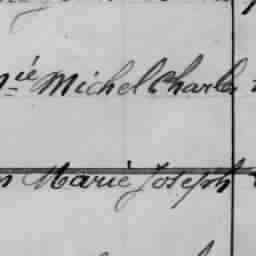 ié Michel Charles
Marie Joseph